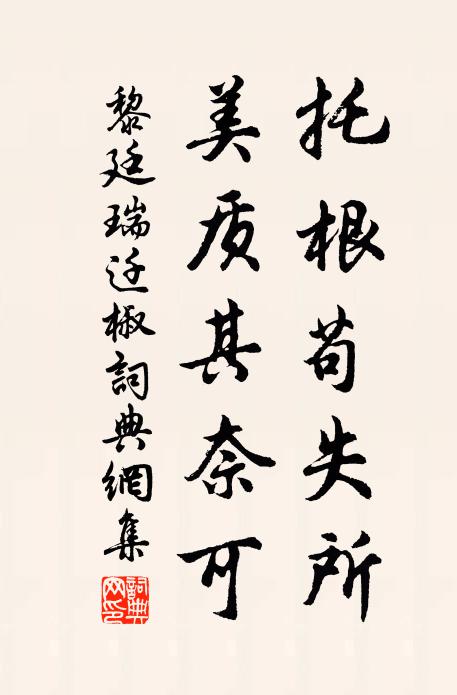 托根苟失所
美质其奈可
黎廷瑞迁椒詞典網集
詞典網印